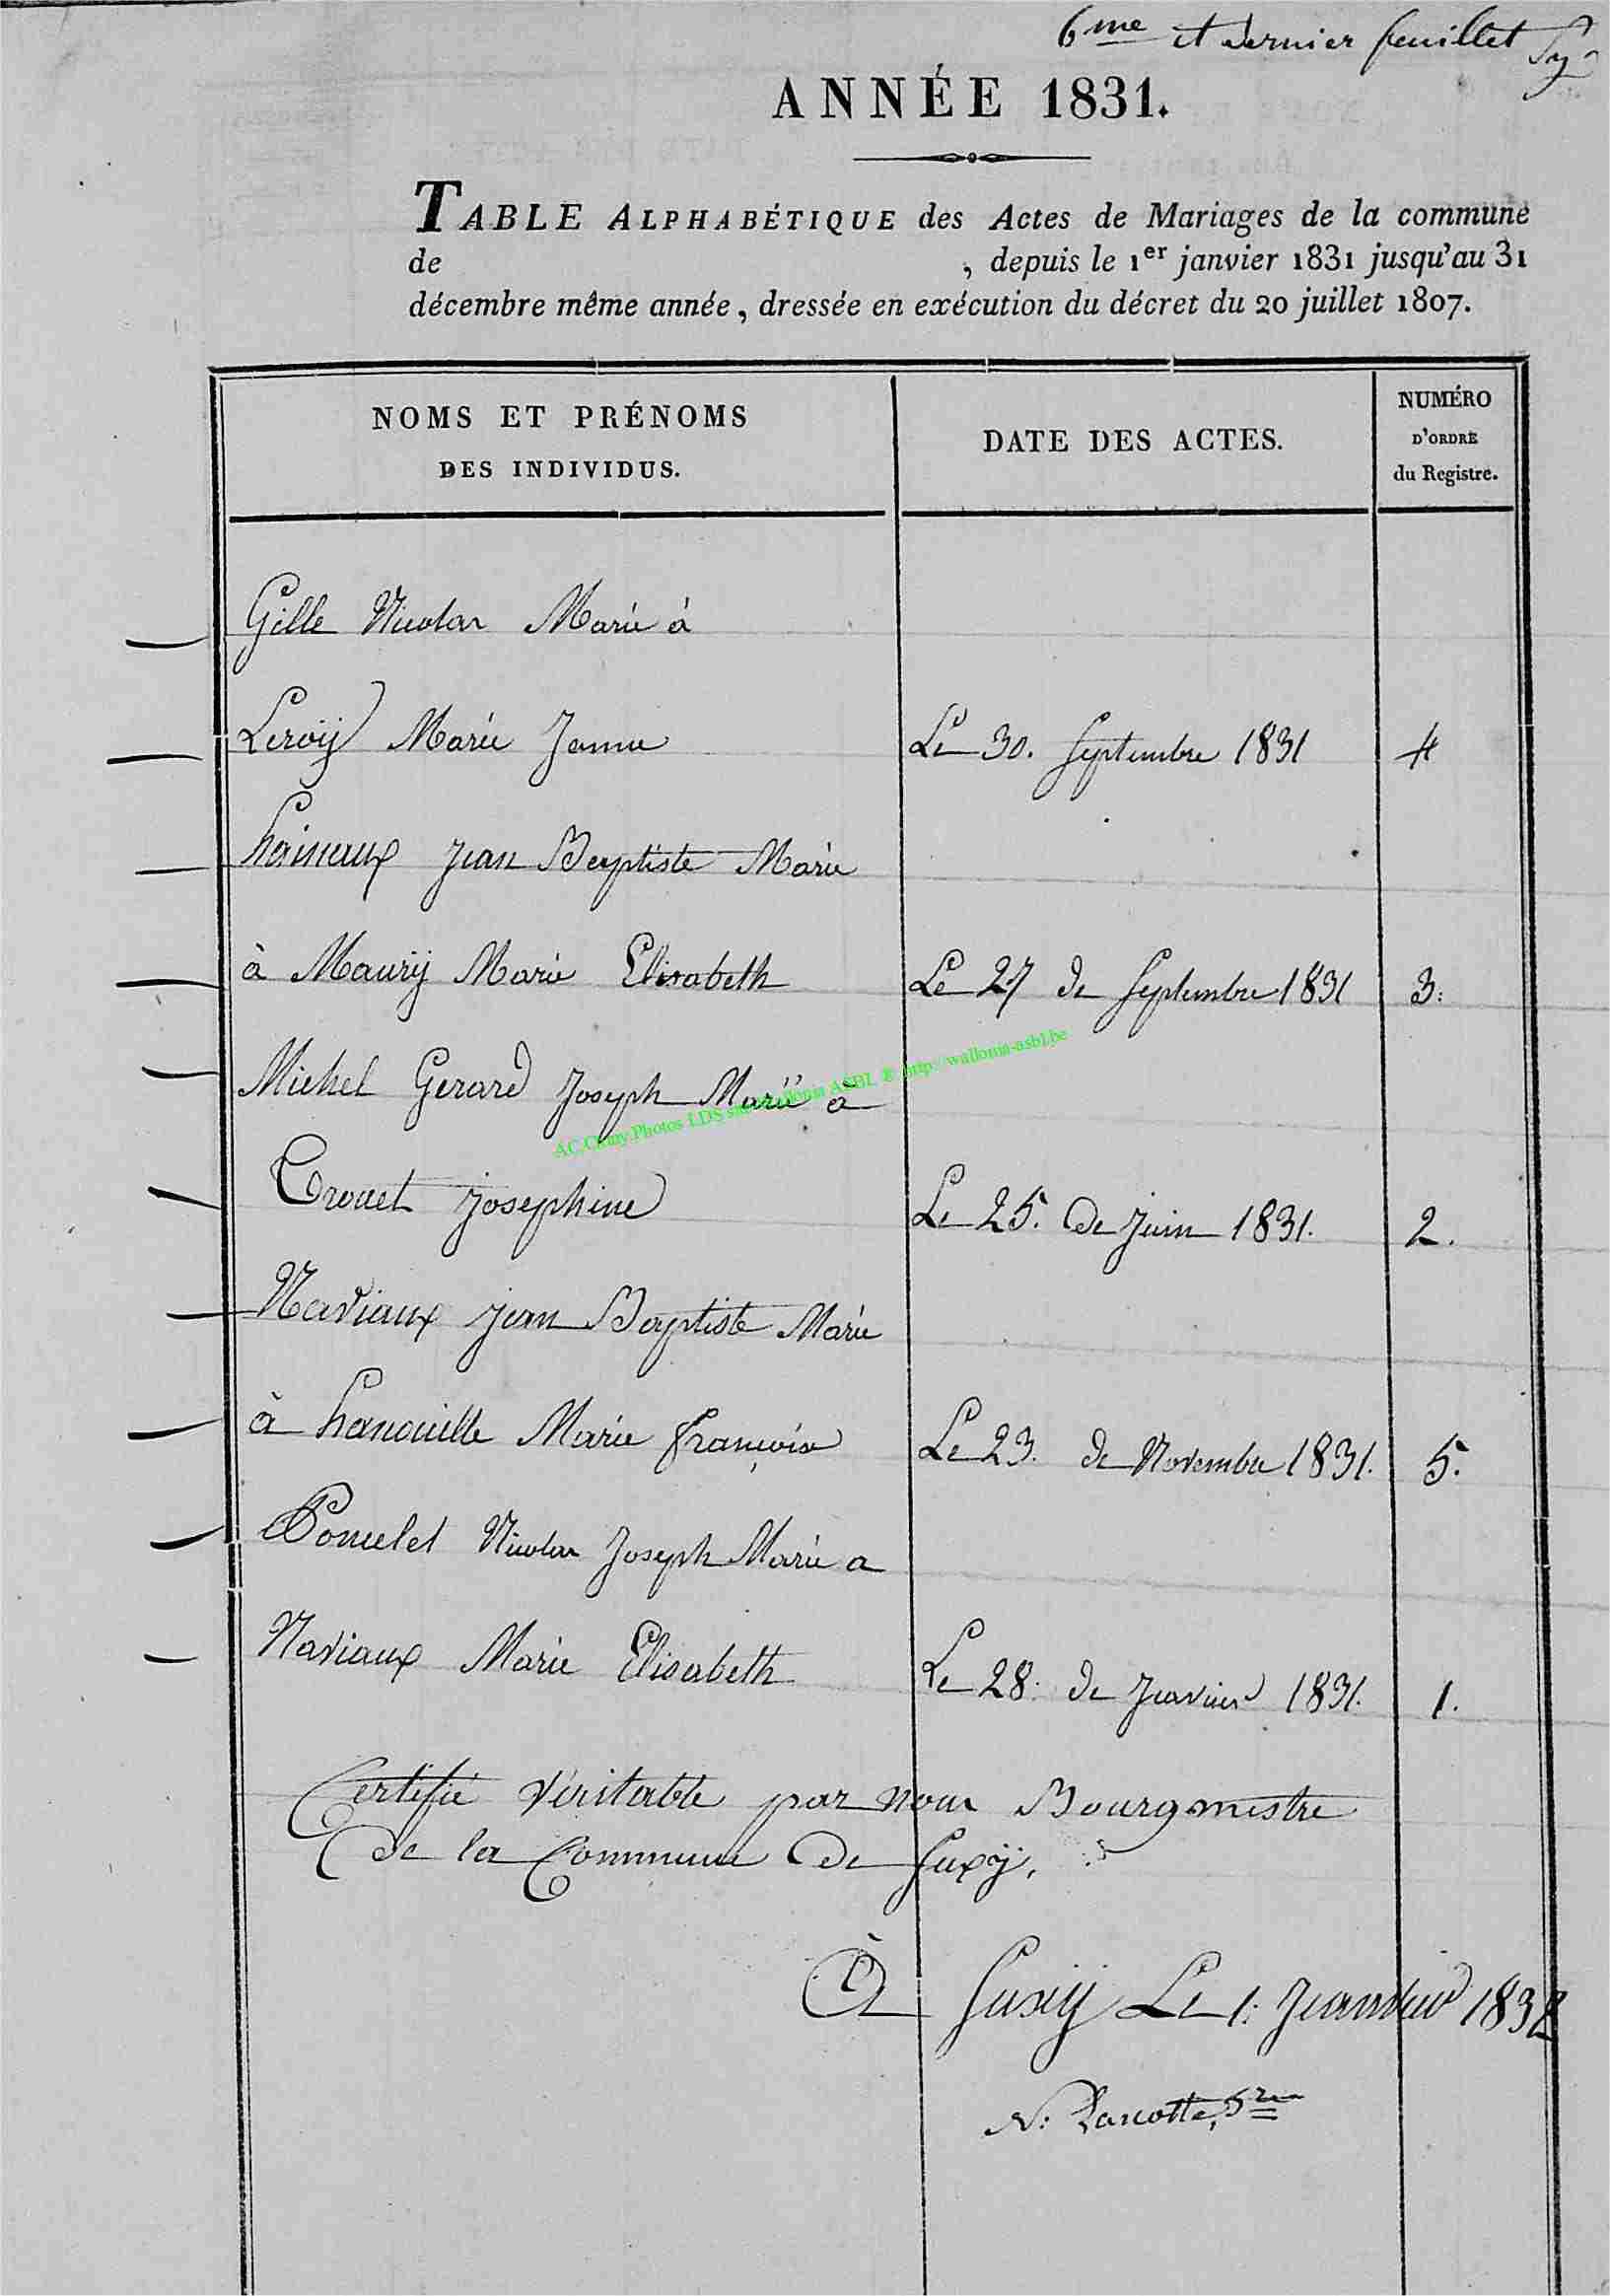 6me et dernier feuillet
ANNÉE 1831.
TABLE ALPHABÉTIQUE des Actes de Mariages de la commune
de , depuis le 1er janvier 1831 jusqu'au 31
décembre même année, dressée en exécution du décret du 20 juillet 1807.
NOMS ET PRÉNOMS
DES INDIVIDUS.
DATE DES ACTES.
NUMÉRO
D'ORDRE
du Registre.
Gille Nicolas Marié à
Leroÿ Marie Jeanne Le 30. Septembre 1831 4
hainaux jean Baptiste Marié
à Maurÿ Marie Elisabeth Le 27 de Septembre 1831 3:
Michel Gerard Joseph Marié à
AC.Chiny.Photos LDS sur Wallonia ASBL ® http://wallonia-asbl.be
Crouet josephine Le 25. de juin 1831. 2.
Naviaux jean Baptiste Marié
à hanouille Marie françoise Le 23. de Novembre 1831. 5.
Poncelet Nicolas Joseph Marié a
Naviaux Marie Elisabeth Le 28. de Janvier 1831. 1.
Certifié Véritable par nous Bourgmestre
de la Commune de Suxÿ.
À Suxÿ Le 1. Janvier 1832
N: Lancotte,